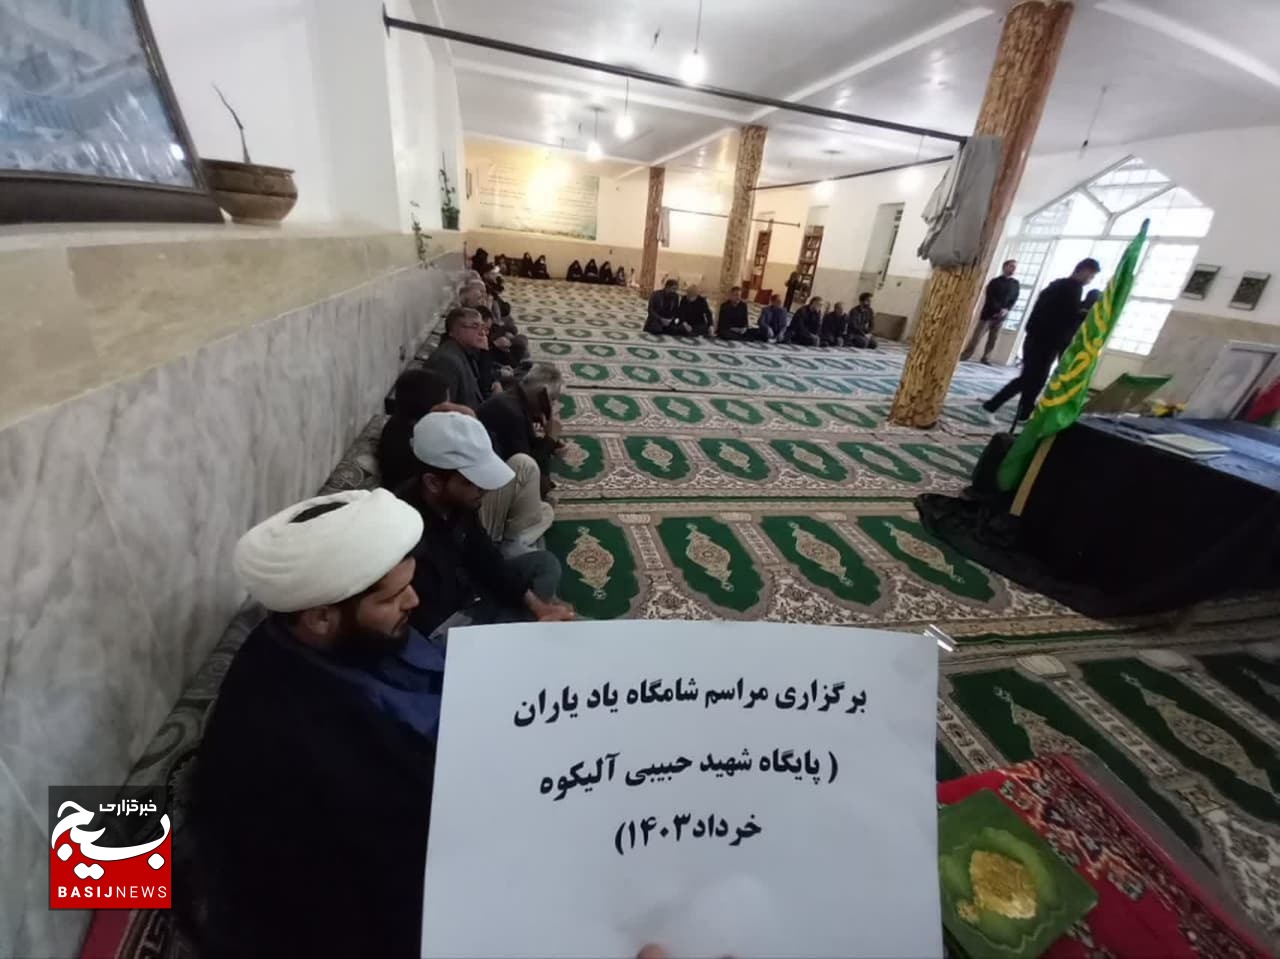 برگزاری مراسم شامگاه یاد یاران
( پایگاه شهید حبیبی آلیکوه
خرداد۱۴۰۳)
خبرگزاری
بسیج
BASIJNEWS